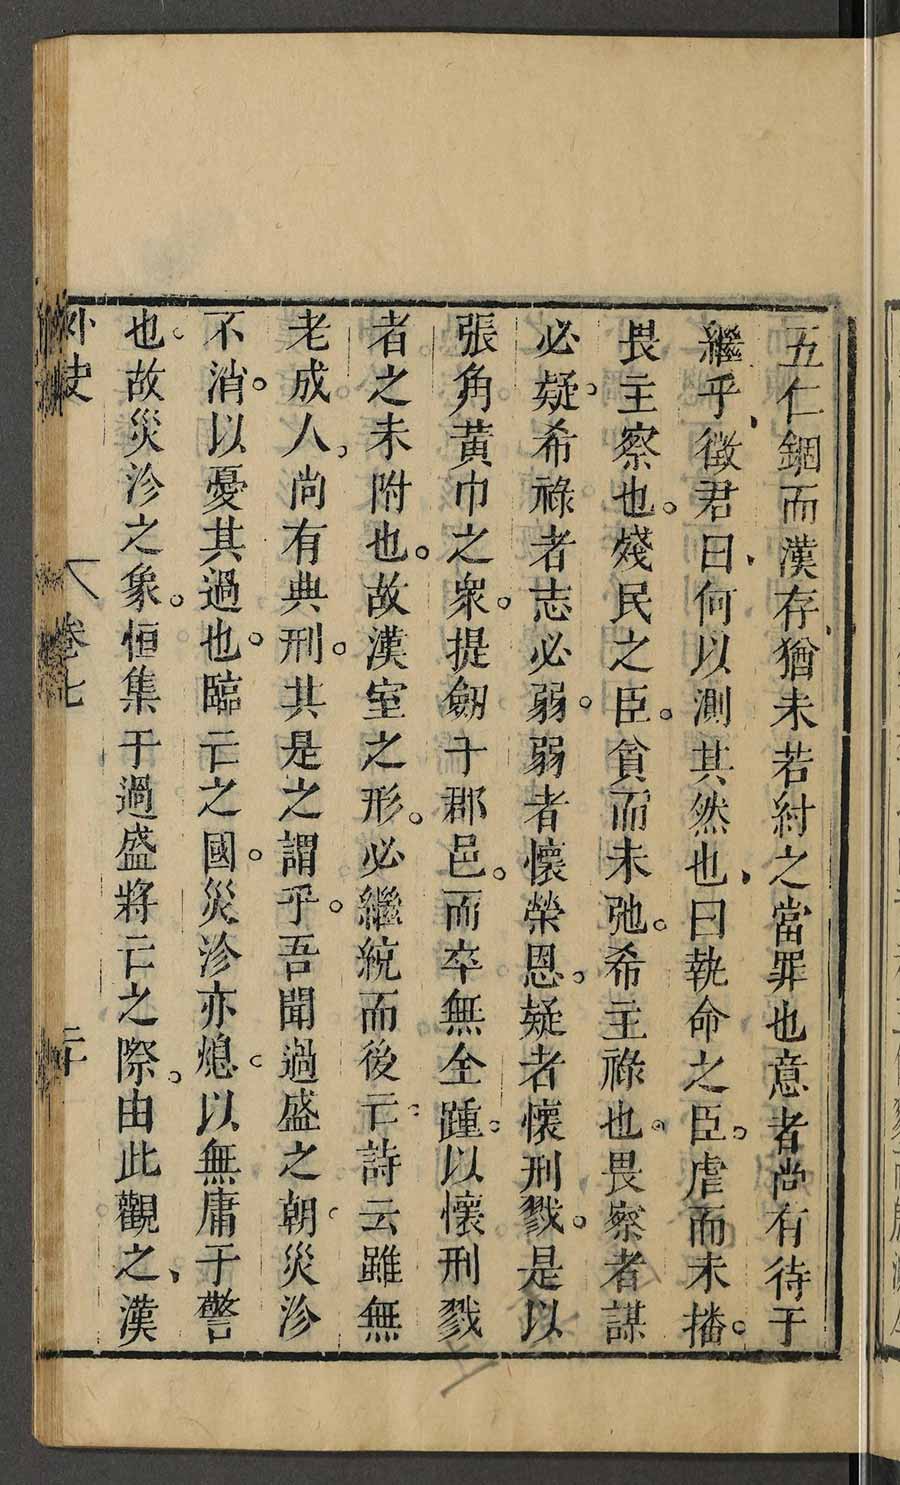 五仁錮而漢存猶未若紂之當罪也意者尚有待于
繼乎徵君曰何以測其然也曰執命之臣。虐而未播。
畏主察也。殘民之臣。貧而未弛。希主祿也。畏察者謀
必疑。希祿者志必弱。弱者懷榮恩。疑者懷刑戮。是以
張角黃巾之衆。提劔于郡邑。而卒無全踵。以懷刑戮
者之未附也。故漢室之形。必繼統而後亡。詩云雖無
老成人。尚有典刑。其是之謂乎。吾聞過盛之朝。災沴
不消。以憂其過也。臨亡之國。災沴亦熄。以無庸于警
也。故災沴之象。恒集于過盛將亡之際。由此觀之、漢
外史 卷七 二十